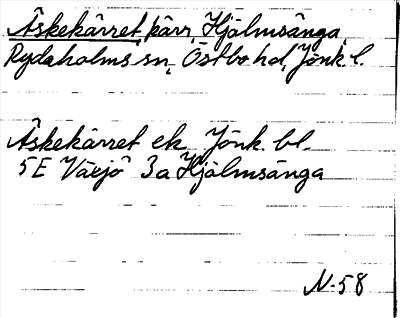 Åskekärret, kärr, Hjälmsänga,
Rydaholms sn, Östbo hd, Jönk. l.
Åskekärret ek. Jönk. bl.
5E Växjö 3a Hjälmsänga
N-58